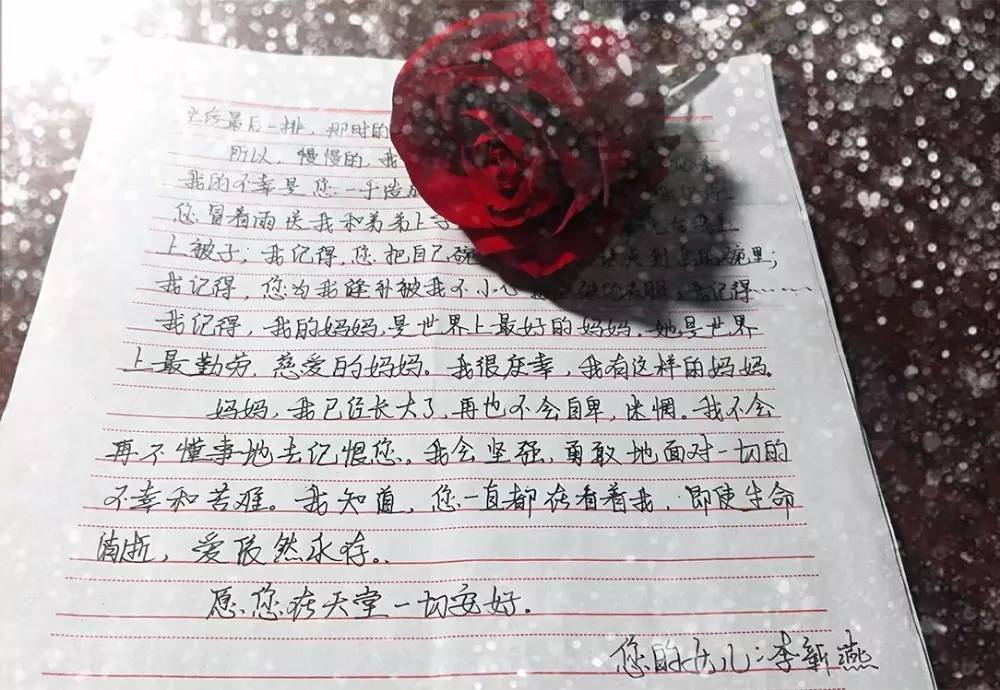 坐传最后一排,那时的
所以,慢慢的,我
我的不幸是您一手造成
您冒着雨送我和弟弟上学
上被子;我记得,您把自己碗 夹到 碗里;
我记得,您为我缝补被我不小心 破的衣服,我记得……
我记得,我的妈妈,是世界上最好的妈妈,她是世界
上最勤劳,慈爱的妈妈。我很庆幸,我有这样的妈妈。
妈妈,我已经长大了,再也不会自卑,迷惘。我不会
再不懂事地去记恨您。我会坚强,勇敢地面对一切的
不幸和苦难。我知道,您一直都在看着我,即使生命
消逝,爱依然永存。
愿您在天堂一切安好.
您的女儿:李新燕